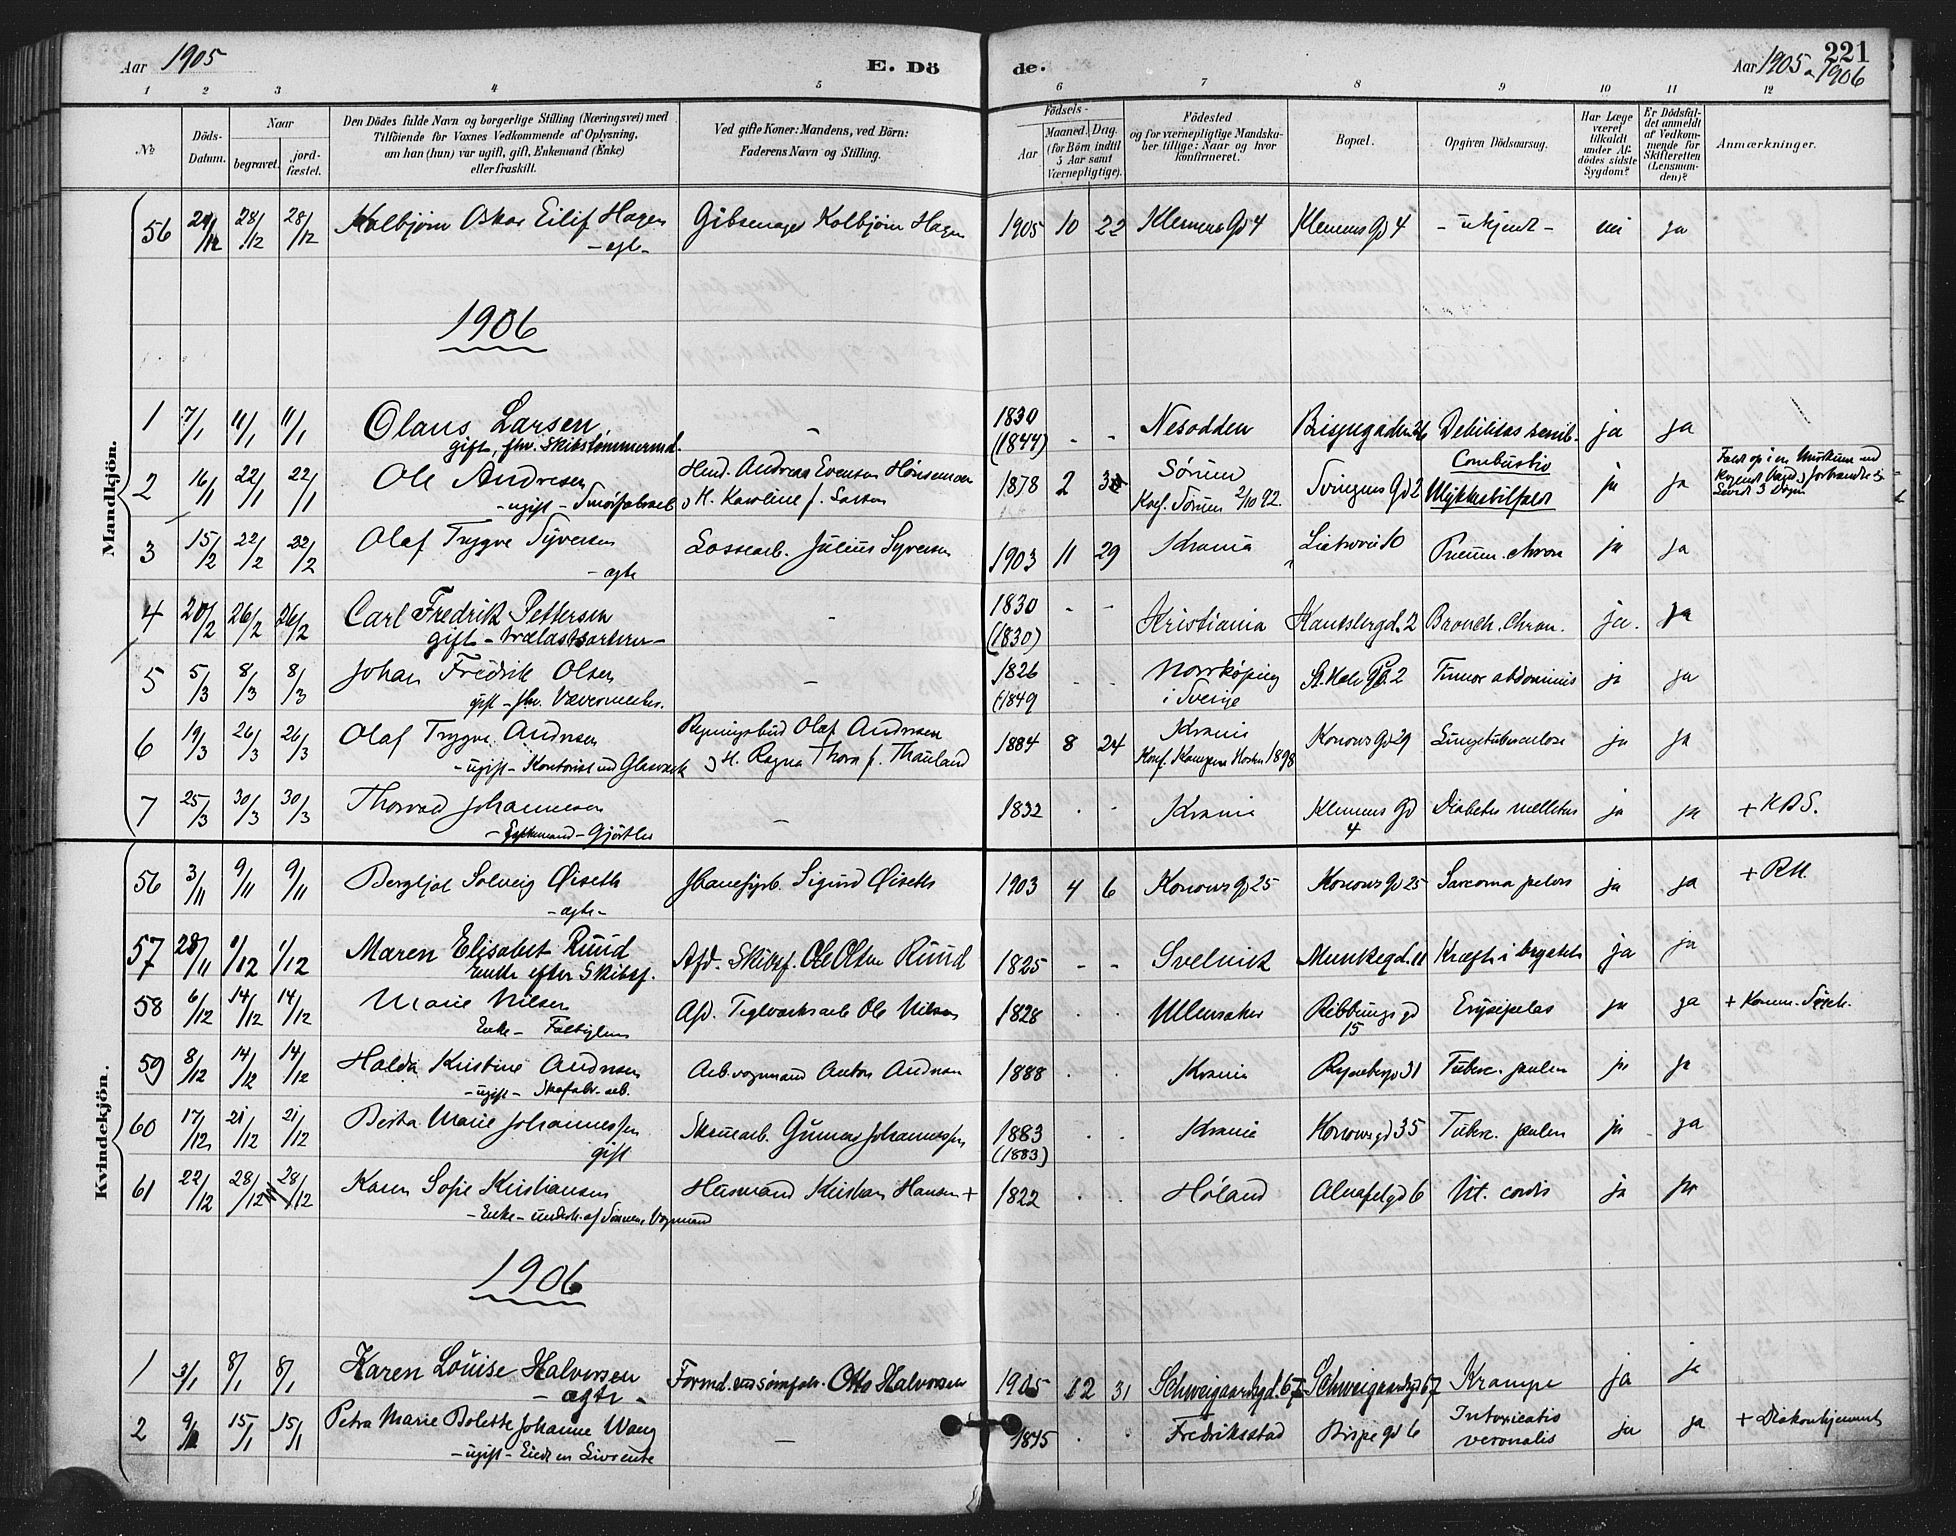 Aar 1905
E. Dö
de.
221
Aar 1905 - 1906
1 2 3 4 5 6 7 8 9 10 11 12
№
Döds-Datum.
Naar
begravet.
jord-fæstet.
Den Dödes fulde Navn og borgerlige Stilling (Næringsvei) med
Tilföiende for Voxnes Vedkommende af Oplysning,
om han (hun) var ugift, gift, Enkemand (Enke)
eller fraskilt.
Ved gifte Koner: Mandens, ved Börn:
Faderens Navn og Stilling.
Födsels-
Aar
Maaned. Dag.
(for Börn indtil
5 Aar samt
Værnepligtige).
Födested
og for værnepligtige Mandska-
ber tillige: Naar og hvor
konfirmeret.
Bopæl.
Opgiven Dödsaarsag.
Har Læge
været
tilkaldt
under Af-
dödes sidste
Sygdom?
Er Dödsfal-
det anmeldt
af Vedkom-
mende for
Skifteretten
(Lensman-
den)?
Anmærkninger.
Mandkjön.
56 28/12 28/12 Kolbjørn Oskar Eilif Hagen Kolbjørn Hagen 1905 10 22 Klemens Gd 4 Klemens Gd 4 - ukjendt - nei ja
- ægte -
1906
1 7/1 11/1 11/1 Olaus Larsen, - 1830 - - Nesodden Debilitas senil. ja ja
gift, fhv. Skibstømmermd. (1844)
2 16/1 22/1 22/1 Ole Andresen Andreas Evensen 1878 2 Sørum Svingens Gd 2 Combustio ja ja
- ugift - H. Karoline f. Larsen Konf. Sørum 2/10 92. Ulykkestilfælde
3 15/2 22/2 22/2 Olaf Trygve Syversen Lossearb. Julius Syversen 1903 11 29 Krania Pneum. chron ja ja
- ægte
4 20/2 26/2 26/2 Carl Fredrik Pettersen - 1830 - - Kristiania Kantslergd. 2 Bronch. chron. ja. ja
gift - trælastsorterer - (1830)
5 5/3 8/3 8/3 Johan Fredrik Olsen - 1826 - - Norrköping St. Hals Gd. 2 Tumor abdominis ja ja
gift - fhv. Vævermester. (1849 i Sverige
6 19/3 26/3 26/3 Olaf Trygve Andresen Olaf Andresen 1884 8 24 Krania Konows Gd 29 Lungetuberculose ja ja
- ugift - Kontorist ved Glasværk H. Ragna Thora f. Thauland Konf. Kampens 1898
7 25/3 30/3 30/3 Johannesen - 1832 - - Krania Klemens Gd 4 Diabetes mellitus ja ja
- Enkemand - Gjørtler
Kvindekjön.
56 3/11 9/11 9/11 Bergljot Solveig Øiseth Sigurd Øiseth 1903 4 6 Konows Gd 25 Konows Gd 25 Sarcoma pelvis ja ja + R.H.
- ægte -
57 28/11 1/12 1/12 Maren Elisabet Ruud Afd. Skibsf. Ole Olsen Ruud 1825 - - Svelvick Munkegd. 11 Kræft i brystet ja ja
Enke efter Skibsf.
58 6/12 14/12 14/12 Marie Nilsen Afd. Teglværksarb Ole Nilsen 1828 - - Ullensaker Ribbungs gd 15 Erysipelas ja ja
Enke - Fattiglem
59 8/12 14/12 14/12 Kristine Andresen Anton Andresen 1888 - - Krania Rynebergd 31 Tuberc. pulm ja ja
- ugift -
60 17/12 21/12 21/12 Berta Marie Johannessen Gunnar Johannessen 1883 - - Krania Konows gd 35 Tuberc. pulm ja ja
gift (1883)
61 22/12 28/12 28/12 Karen Sofie Kristiansen Husmand Kristian Hansen + 1822 - - Høland Alnafetgd 6 Vit. cordis ja ja
- Enke - underh. af Sønnen, Vognmand
1906
1 3/1 8/1 8/1 Karen Louise Halvorsen Otto Halvorsen 1905 12 31 Schweigaardsgd. 67 Schweigaardsgd 67 Krampe ja ja
- ægte -
2 15/1 15/1 Petra Marie Bolette Johanne Wang - 1845 - - Fredriksstad Bispe gd 6 Intoxicatio ja ja + Diakonhjemmet
- ugift - veronalis